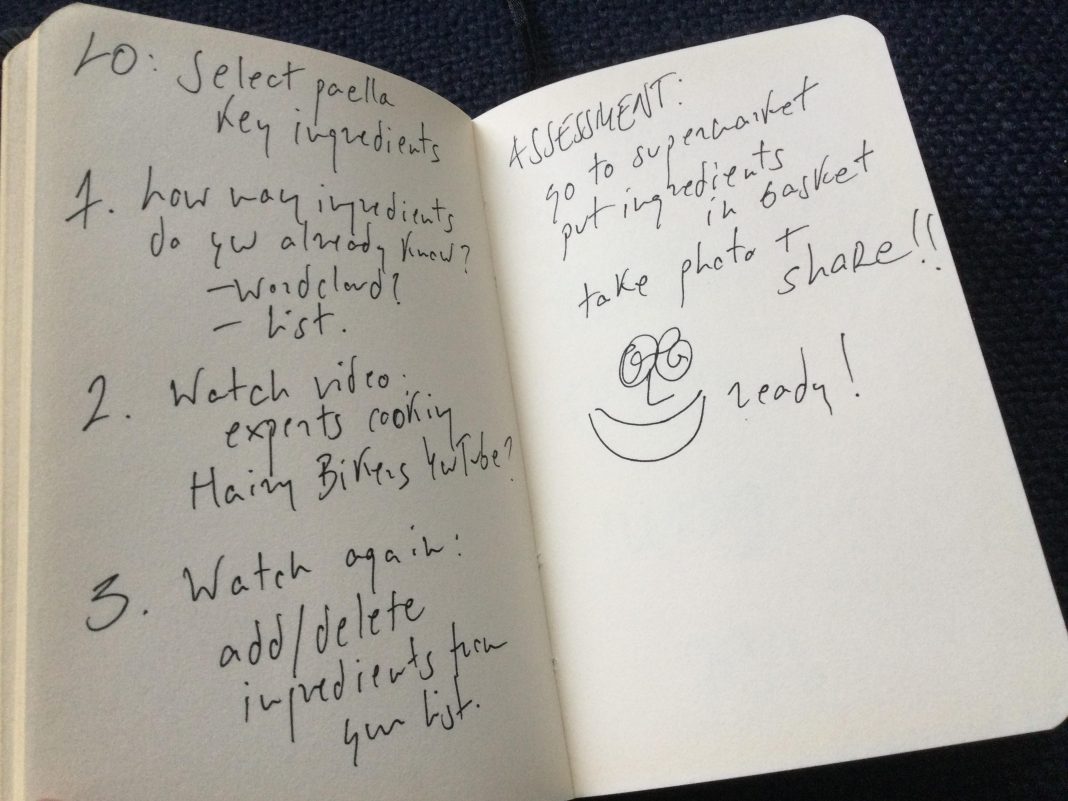 LO: Select paella
key ingredients
1. how many ingredients
do you already know?
- Wordcloud?
- List.
2. Watch video:
experts cooking
Hairy Bikers YouTube?
3. Watch again:
add/delete
ingredients from
your list.
ASSESSMENT:
go to supermarket
put ingredients
in basket
take photo +
share!!
ready!